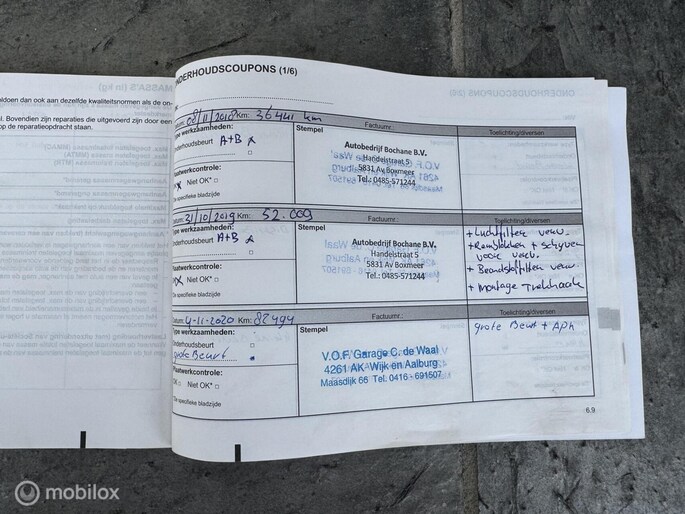 ldoen dan ook aan dezelfde kwaliteitsnormen als de on-
l. Bovendien zijn reparaties die uitgevoerd zijn door een
op de reparatieopdracht staan.
NDERHOUDSCOUPONS (1/6)
Datum: 08/11/2018 Km: 36441 km Factuurnr.: Toelichting/diversen
Type werkzaamheden: Stempel
Onderhoudsbeurt A+B x
Plaatwerkcontrole:
Niet OK*
*Zie specifieke bladzijde
Autobedrijf Bochane B.V.
Handelstraat 5
5831 Av Boxmeer
Tel.: 0485-571244
Datum: 31/10/2019 Km: 52.009 Factuurnr.: Toelichting/diversen
Type werkzaamheden: Stempel
Onderhoudsbeurt A+B x
Plaatwerkcontrole:
Niet OK*
*Zie specifieke bladzijde
Autobedrijf Bochane B.V.
Handelstraat 5
5831 Av Boxmeer
Tel.: 0485-571244
+ Luchtfilter verv.
+ Remblokken + schijven
voor verv.
+ Brandstoffilter verv.
+ Montage Trekhaak
Datum: 4-11-2020 Km: 82494 Factuurnr.: Toelichting/diversen
Type werkzaamheden: Stempel
Onderhoudsbeurt
grote Beurt
Plaatwerkcontrole:
OK Niet OK*
*Zie specifieke bladzijde
V.O.F. Garage C. de Waal
4261 AK Wijk en Aalburg
Maasdijk 66 Tel: 0416 - 691507
grote Beurt + APK
6.9
mobilox